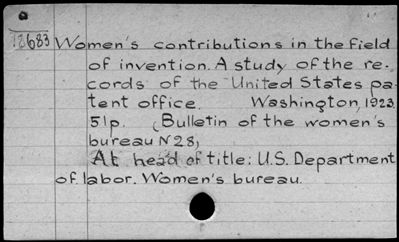 a
12683 Women's contributions in the field
of invention. A study of the re-
cords of the United States pa-
tent office. Washington, 1923.
51p. (Bulletin of the women's
bureau N 28)
At head of title: U.S. Department
of labor. Women's bureau.